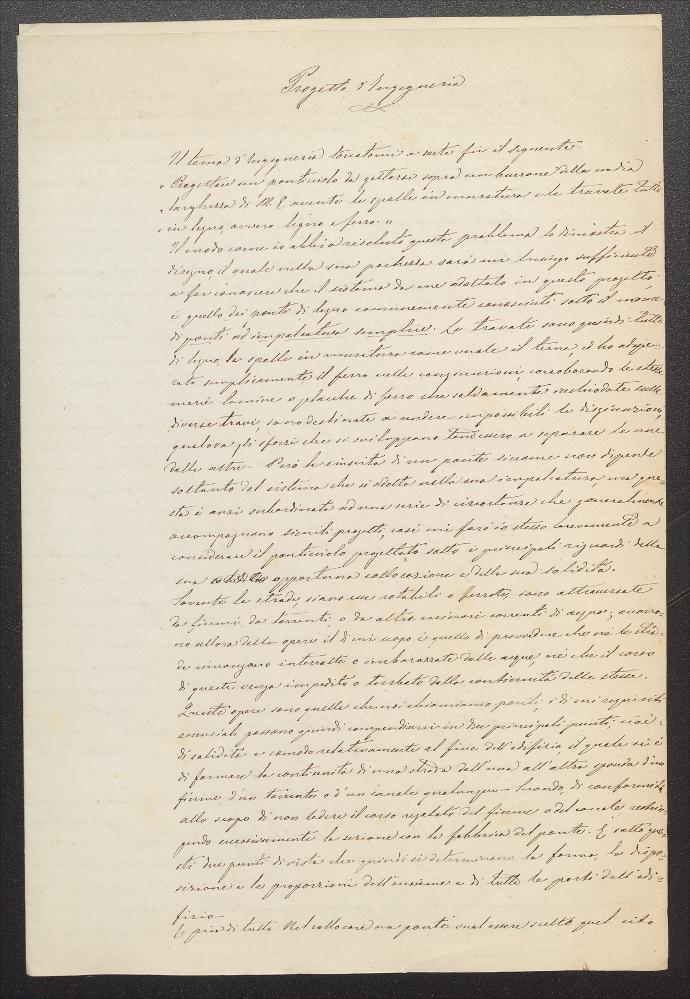 Progetto d'Ingegneria
Il tema d'Ingegneria toccatomi a sorte fu il seguente.
" Progettare un ponticiolo da gettarsi sopra un burrone della media
" larghezza di M. 8 avente le spalle in muratura e le travate tutte
" in legno, ovvero legno e ferro. "
Il modo come io abbia risoluto questo problema lo dimostra il
disegno, il quale nella sua pochezza sarà un luogo sufficiente
a far conoscere che il sistema da me adottato in questo progetto,
è quello dei ponti di legno comunemente conosciuti sotto il nome
di ponti ad impalcatura semplice. Le travate sono quindi tutte
di legno, le spalle in muratura come vuole il tema, ed ho adope-
rato semplicemente il ferro nelle congiunzioni, corroborando le stesse
mercè lamine o placche di ferro che saldamente inchiodate sulle
diverse travi, sono destinate a rendere impossibili le disgiunzioni
qualora gli sforzi che si sviluppano tendessero a separare le une
dalle altre. Però la riuscita di un ponte siccome non dipende
soltanto dal sistema che si adotta nella sua impalcatura, ma que-
sta è anzi subordinata ad una serie di circostanze che generalmente
accompagnano simili progetti, così mi farò io stesso brevemente a
considerare il ponticiolo progettato sotto i principali riguardi della
sua opportuna collocazione e della sua solidità.
Sovente le strade, siano esse rotabili o ferrate, sono attraversate
da fiumi, da torrenti, o da altre minori correnti di acqua; occorro-
no allora delle opere il di cui scopo è quello di provvedere che nè le stra-
de rimangano interrotte o imbarazzate dalle acque, nè che il corso
di queste venga impedito o turbato dalla continuità delle stesse.
Queste opere sono quelle che noi chiamiamo ponti, i di cui requisiti
essenziali possono quindi compendiarsi in due principali punti, cioè:
di solidità e comodo relativamente al fine dell'edifizio il quale si è
di formare la continuità di una strada dall'una all'altra sponda d'un
fiume, d'un torrente, o d'un canale qualunque - secondo, di conformità
allo scopo di non ledere il corso regolato del fiume o del canale restrin-
gendo eccessivamente la sezione con la fabbrica del ponte. È sotto que-
sti due punti di vista che quindi si determinano la forma, la dispo-
sizione e le proporzioni dell'insieme e di tutte le parti dell'edi-
fizio.
E pria di tutto. Nel collocare un ponte vuol essere scelto quel sito